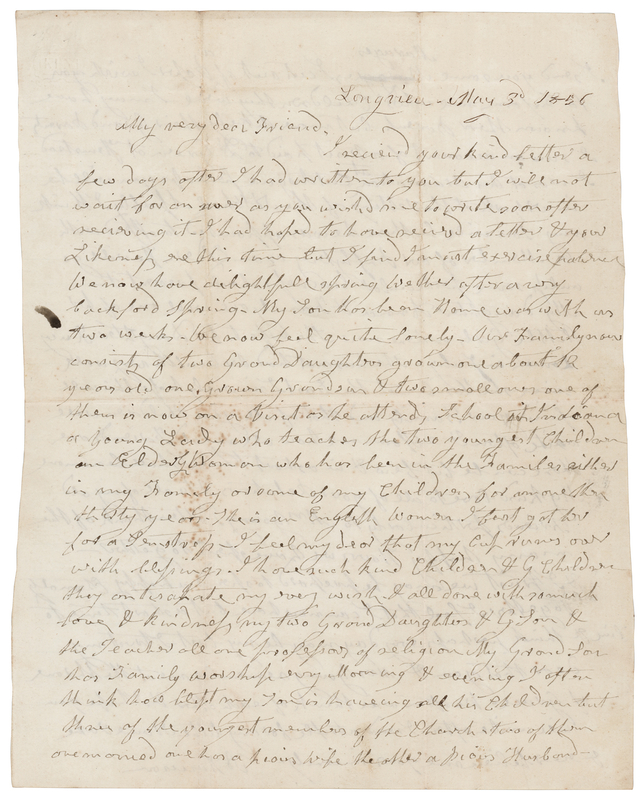 Longview - May 3d 1856
My very dear Friend.
I recievd your kind Letter a
few days after I had written to you but I will not
wait for answer as you wishd me to write soon after
recieving it - I had hoped to have recievd a letter & your
Likeness ere this time but I find I must exercise patience
We now have delightfull spring wether after a very
backford Spring - My Son has bean Home was with us
two weeks - We now feel quite lonely - Our Family now
consists of two Grand Daughters grown one about 12
years old one Grown Grandson & two small ones one of
them is now on a visit as he attends School at Indiana
a Young Laidy who teaches the two youngest Children
an Elderly Woman who has been in the Families either
in my Family or some of my Children for more than
thirty years She is an English Women I first got her
for a Semstress - I feel my dear that my Cup runs over
with blessings - I have such kind Children & G Children
they anticapate my every wish & all done with so much
love & kindness my two Grand Daughters & G Son &
the Teacher all are professors of religion My Grand Son
has Family worship evry Morning & evening I often
think how blest my Son is haveing all his Children but
three of the youngest members of the Church - two of them
are married one has a pious wife the other a pious Husband